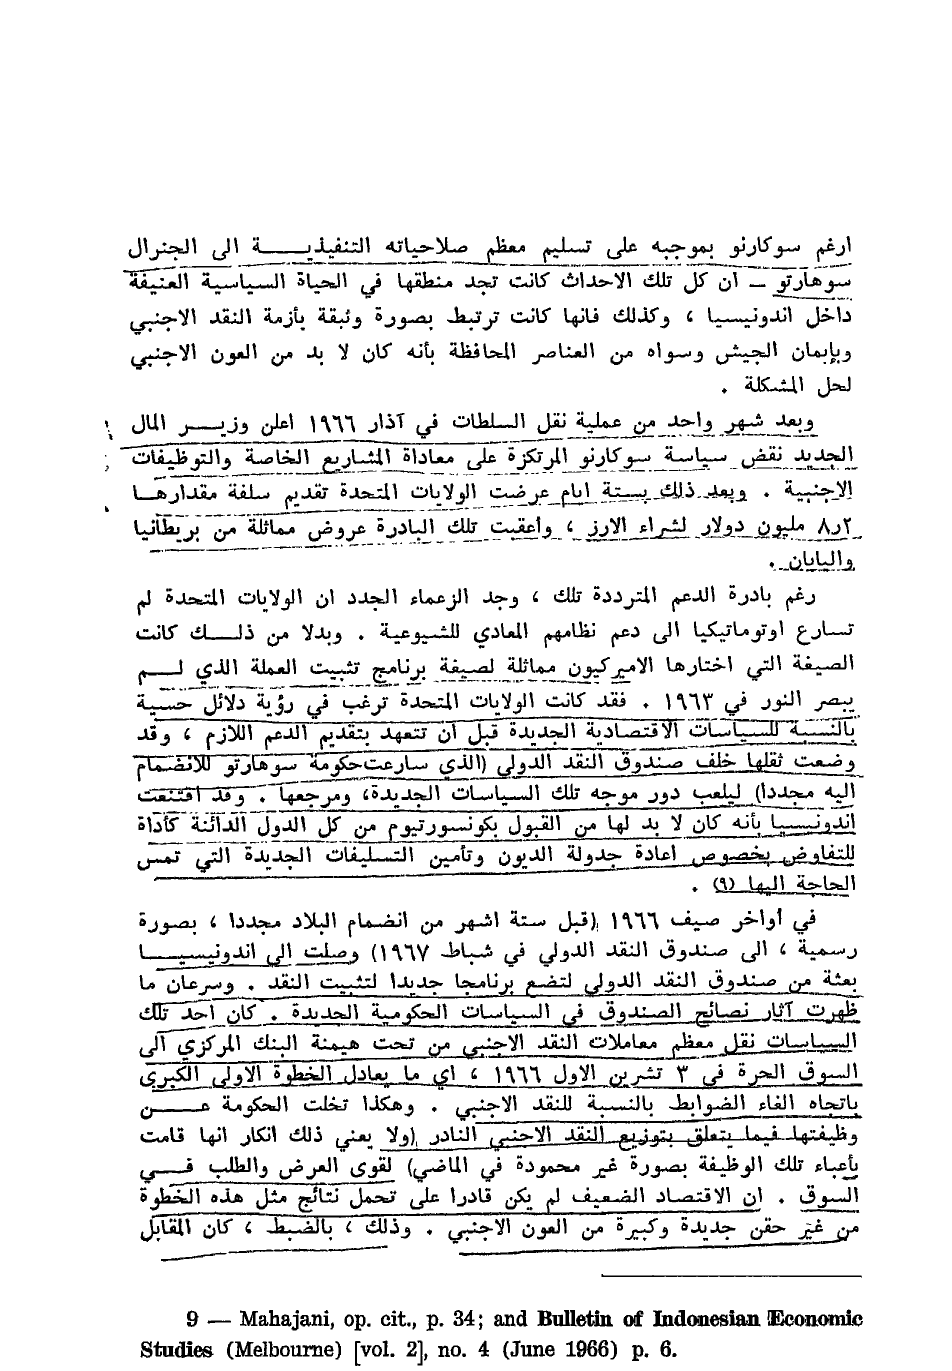 ارغم سوكارنو بموجبه على تسليم معظم صلاحياته التنفيذيـــــة الى الجنرال
سوهارتو — ان كل تلك الاحداث كانت تجد منطقها في الحياة السياسية العنيفة
داخل اندونيسيا ، وكذلك فانها كانت ترتبط بصورة وثيقة بأزمة النقد الاجنبي
وبإيمان الجيش وسواه من العناصر المحافظة بأنه كان لا بد من العون الاجنبي
لحل المشكلة .
وبعد شهر واحد من عملية نقل السلطات في آذار ١٩٦٦ اعلن وزيـــر المال
الجديد نقض سياسة سوكارنو المرتكزة على معاداة المشاريع الخاصة والتوظيفات
الاجنبية . وبعد ذلك بستة ايام عرضت الولايات المتحدة تقديم سلفة مقدارهـا
٨٫٢ مليون دولار لشراء الارز ، وأعقبت تلك البادرة عروض مماثلة من بريطانيا
واليابان .
رغم بادرة الدعم المترددة تلك ، وجد الزعماء الجدد ان الولايات المتحدة لم
تسارع اوتوماتيكيا الى دعم نظامهم المعادي للشيوعية . وبدلا من ذلـــك كانت
الصيغة التي اختارها الاميركيون مماثلة لصيغة برنامج تثبيت العملة الذي لـــم
يبصر النور في ١٩٦٣ . فقد كانت الولايات المتحدة ترغب في رؤية دلائل حسية
بالنسبة للسياسات الاقتصادية الجديدة قبل ان تتعهد بتقديم الدعم اللازم ، وقد
وضعت ثقلها خلف صندوق النقد الدولي (الذي سارعت حكومة سوهارتو للانضمام
اليه مجددا) ليلعب دور موجه تلك السياسات الجديدة، ومرجعها . وقد اقتنعت
اندونيسيا بأنه كان لا بد لها من القبول بكونسورتيوم من كل الدول الدائنة كأداة
للتفاوض بخصوص اعادة جدولة الديون وتأمين التسليفات الجديدة التي تمس
الحاجة اليها (٩) .
في أواخر صيف ١٩٦٦ (قبل ستة اشهر من انضمام البلاد مجددا ، بصورة
رسمية ، الى صندوق النقد الدولي في شباط ١٩٦٧) وصلت الى اندونيسيـــا
بعثة من صندوق النقد الدولي لتضع برنامجا جديدا لتثبيت النقد . وسرعان ما
ظهرت آثار نصائح الصندوق في السياسات الحكومية الجديدة . كان احد تلك
السياسات نقل معظم معاملات النقد الاجنبي من تحت هيمنة البنك المركزي الى
السوق الحرة في ٣ تشرين الاول ١٩٦٦ ، اي ما يعادل الخطوة الاولى الكبرى
باتجاه الغاء الضوابط بالنسبة للنقد الاجنبي . وهكذا تخلت الحكومة عـــن
وظيفتها فيما يتعلق بتوزيع النقد الاجنبي النادر (ولا يعني ذلك انكار انها قامت
بأعباء تلك الوظيفة بصورة غير محمودة في الماضي) لقوى العرض والطلب فـــي
السوق . ان الاقتصاد الضعيف لم يكن قادرا على تحمل نتائج مثل هذه الخطوة
من غير حقن جديدة وكبيرة من العون الاجنبي . وذلك ، بالضبط ، كان المقابل
9 — Mahajani, op. cit., p. 34; and Bulletin of Indonesian Economic
Studies (Melbourne) [vol. 2], no. 4 (June 1966) p. 6.